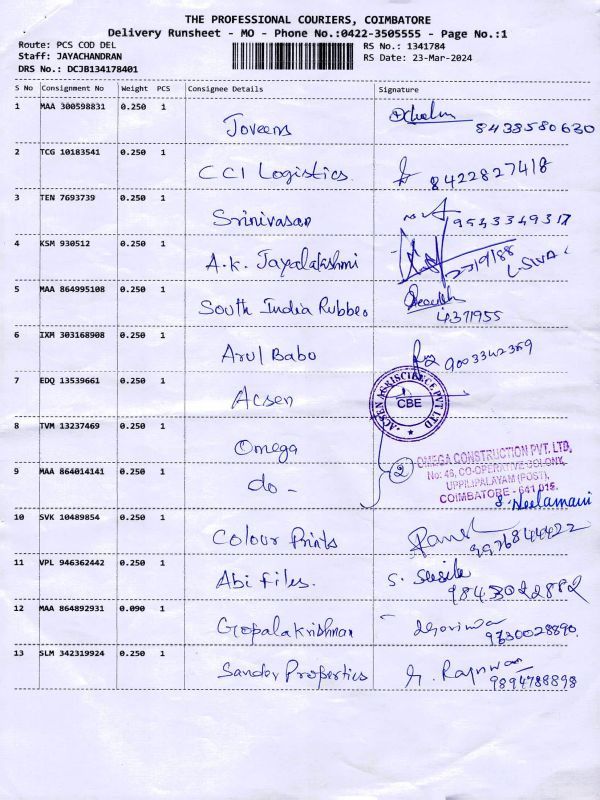 THE PROFESSIONAL COURIERS, COIMBATORE
Delivery Runsheet - MO - Phone No.:0422-3505555 - Page No.:1
Route: PCS COD DEL RS No.: 1341784
Staff: JAYACHANDRAN RS Date: 23-Mar-2024
DRS No.: DCJB134178401
S No Consignment No Weight PCS Consignee Details Signature
1 MAA 300598831 0.250 1 Joveens 8438580630
2 TCG 10183541 0.250 1 CCI Logistics. 8422827418
3 TEN 7693739 0.250 1 Srinivasan 9543349317
4 KSM 930512 0.250 1 A.K. Jayalakshmi
5 MAA 864995108 0.250 1 South India Rubber 4371955
6 IXM 303168908 0.250 1 Arul Babu 9003342359
7 EDQ 13539661 0.250 1 Acsen
CBE
8 TVM 13237469 0.250 1 Omega
9 MAA 864014141 0.250 1 do - 2
OMEGA CONSTRUCTION PVT. LTD,
No: 46, CO-OPERATIVE COLONY,
UPPILIPALAYAM (POST),
COIMBATORE - 641 015.
S. Neelamani
10 SVK 10489854 0.250 1 Colour Prints 9976844422
11 VPL 946362442 0.250 1 Abi Files. S. Susila
9843022882
12 MAA 864892931 0.090 1 Gopalakrishnan
9630028890.
13 SLM 342319924 0.250 1 Sandov Properties
9894788898